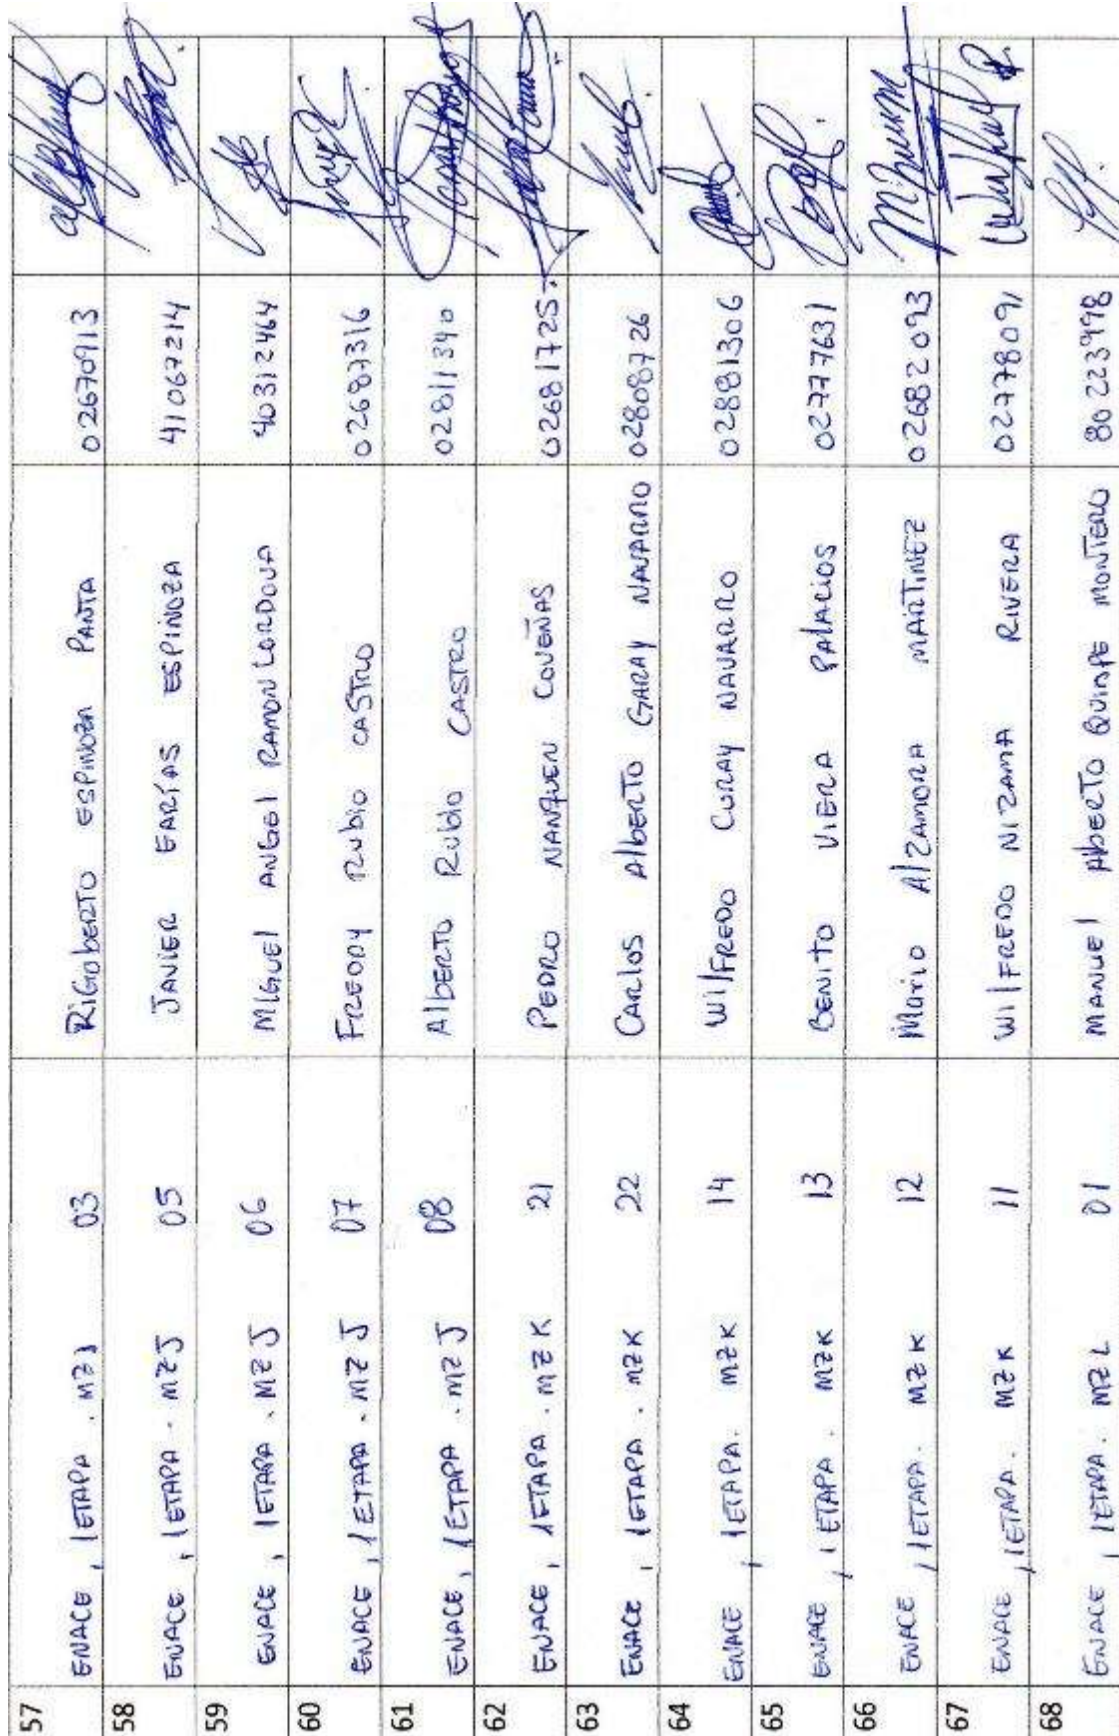 57 ENACE, 1ETAPA. MZJ 03 RIGOBERTO ESPINOZA PANTA 02670913
58 ENACE, 1ETAPA. MZ J 05 JAVIER FARÍAS ESPINOZA 41067214
59 ENACE, 1ETAPA. MZ J 06 MIGUEL ANGEL RAMON CORDOVA 40312464
60 ENACE, 1ETAPA. MZ J 07 FREDDY RUBIO CASTRO 02687316
61 ENACE, 1ETAPA. MZ J 08 AlbERTO RUBIO CASTRO 02811340
62 ENACE, 1ETAPA. MZ K 21 PEDRO COVEÑAS 02681725
63 ENACE, 1ETAPA. MZK 22 CARLOS AlbERTO GARAY NAVARRO 02808726
64 ENACE, 1ETAPA. MZK 14 WIlFREDO CURAY NAVARRO 02881306
65 ENACE, 1ETAPA. MZK 13 BENITO VIERA PALACIOS 02777631
66 ENACE, 1ETAPA. MZ K 12 Mario AlZAMORA MARTINEZ 02682093
67 ENACE, 1ETAPA. MZ K 11 WIlFREDO NIZAMA RIVERA 02778091
68 ENACE, 1ETAPA. MZ L 01 MANUEL AlbERTO QUISPE MONTERO 80223998